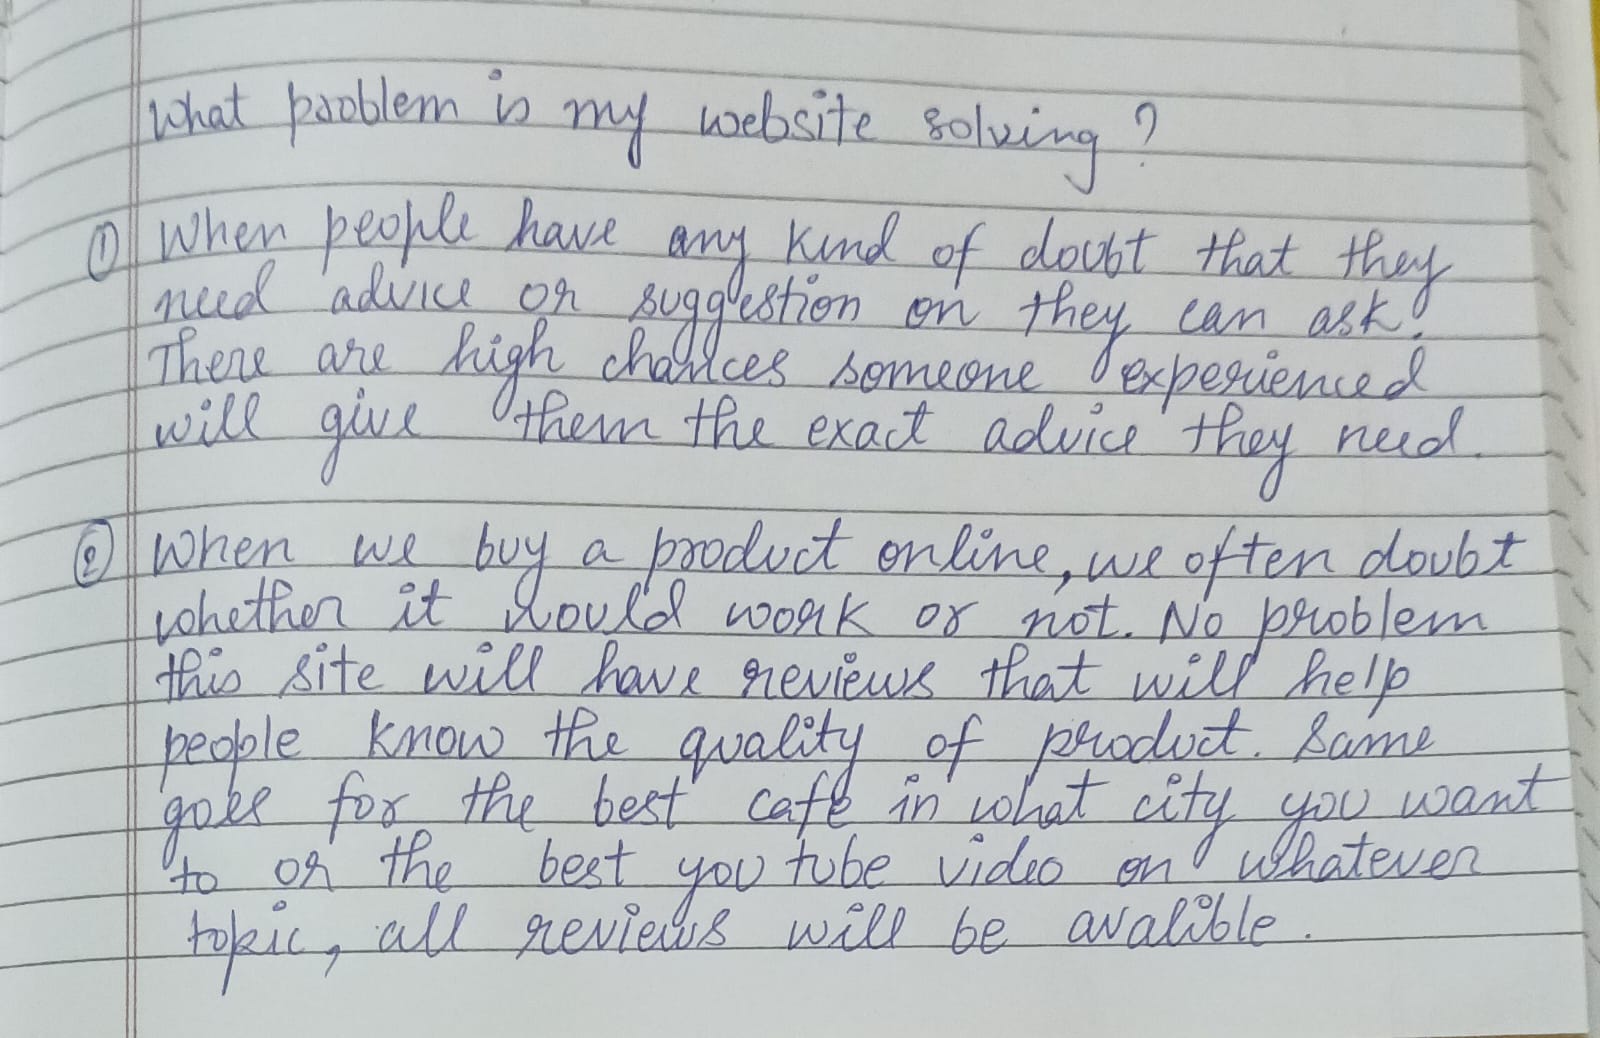 What problem is my website solving?
① When people have any kind of doubt that they
need advice or suggestion on they can ask.
There are high chances someone experienced
will give them the exact advice they need.
② When we buy a product online, we often doubt
whether it would work or not. No problem
this site will have reviews that will help
people know the quality of product. Same
goes for the best cafe in what city you want
to or the best you tube video on whatever
topic, all reviews will be avalible.